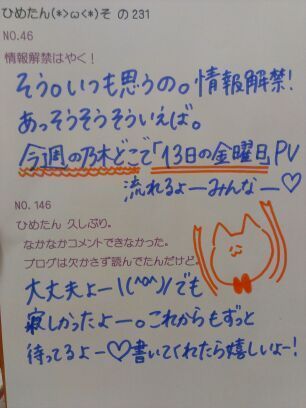 ひめたん(*>ω<*)そ の231
NO.46
情報解禁はやく!
そう。いつも思うの。情報解禁!
あっそうそうそういえば。
今週の乃木どこで「13日の金曜日」PV
流れるよーみんなー♡
NO.146
ひめたん 久しぶり。
なかなかコメントできなかった。
ブログは欠かさず読んでたんだけど。
大丈夫よー\(^^)/でも
寂しかったよー。これからもずっと
待ってるよー♡書いてくれたら嬉しいよー!